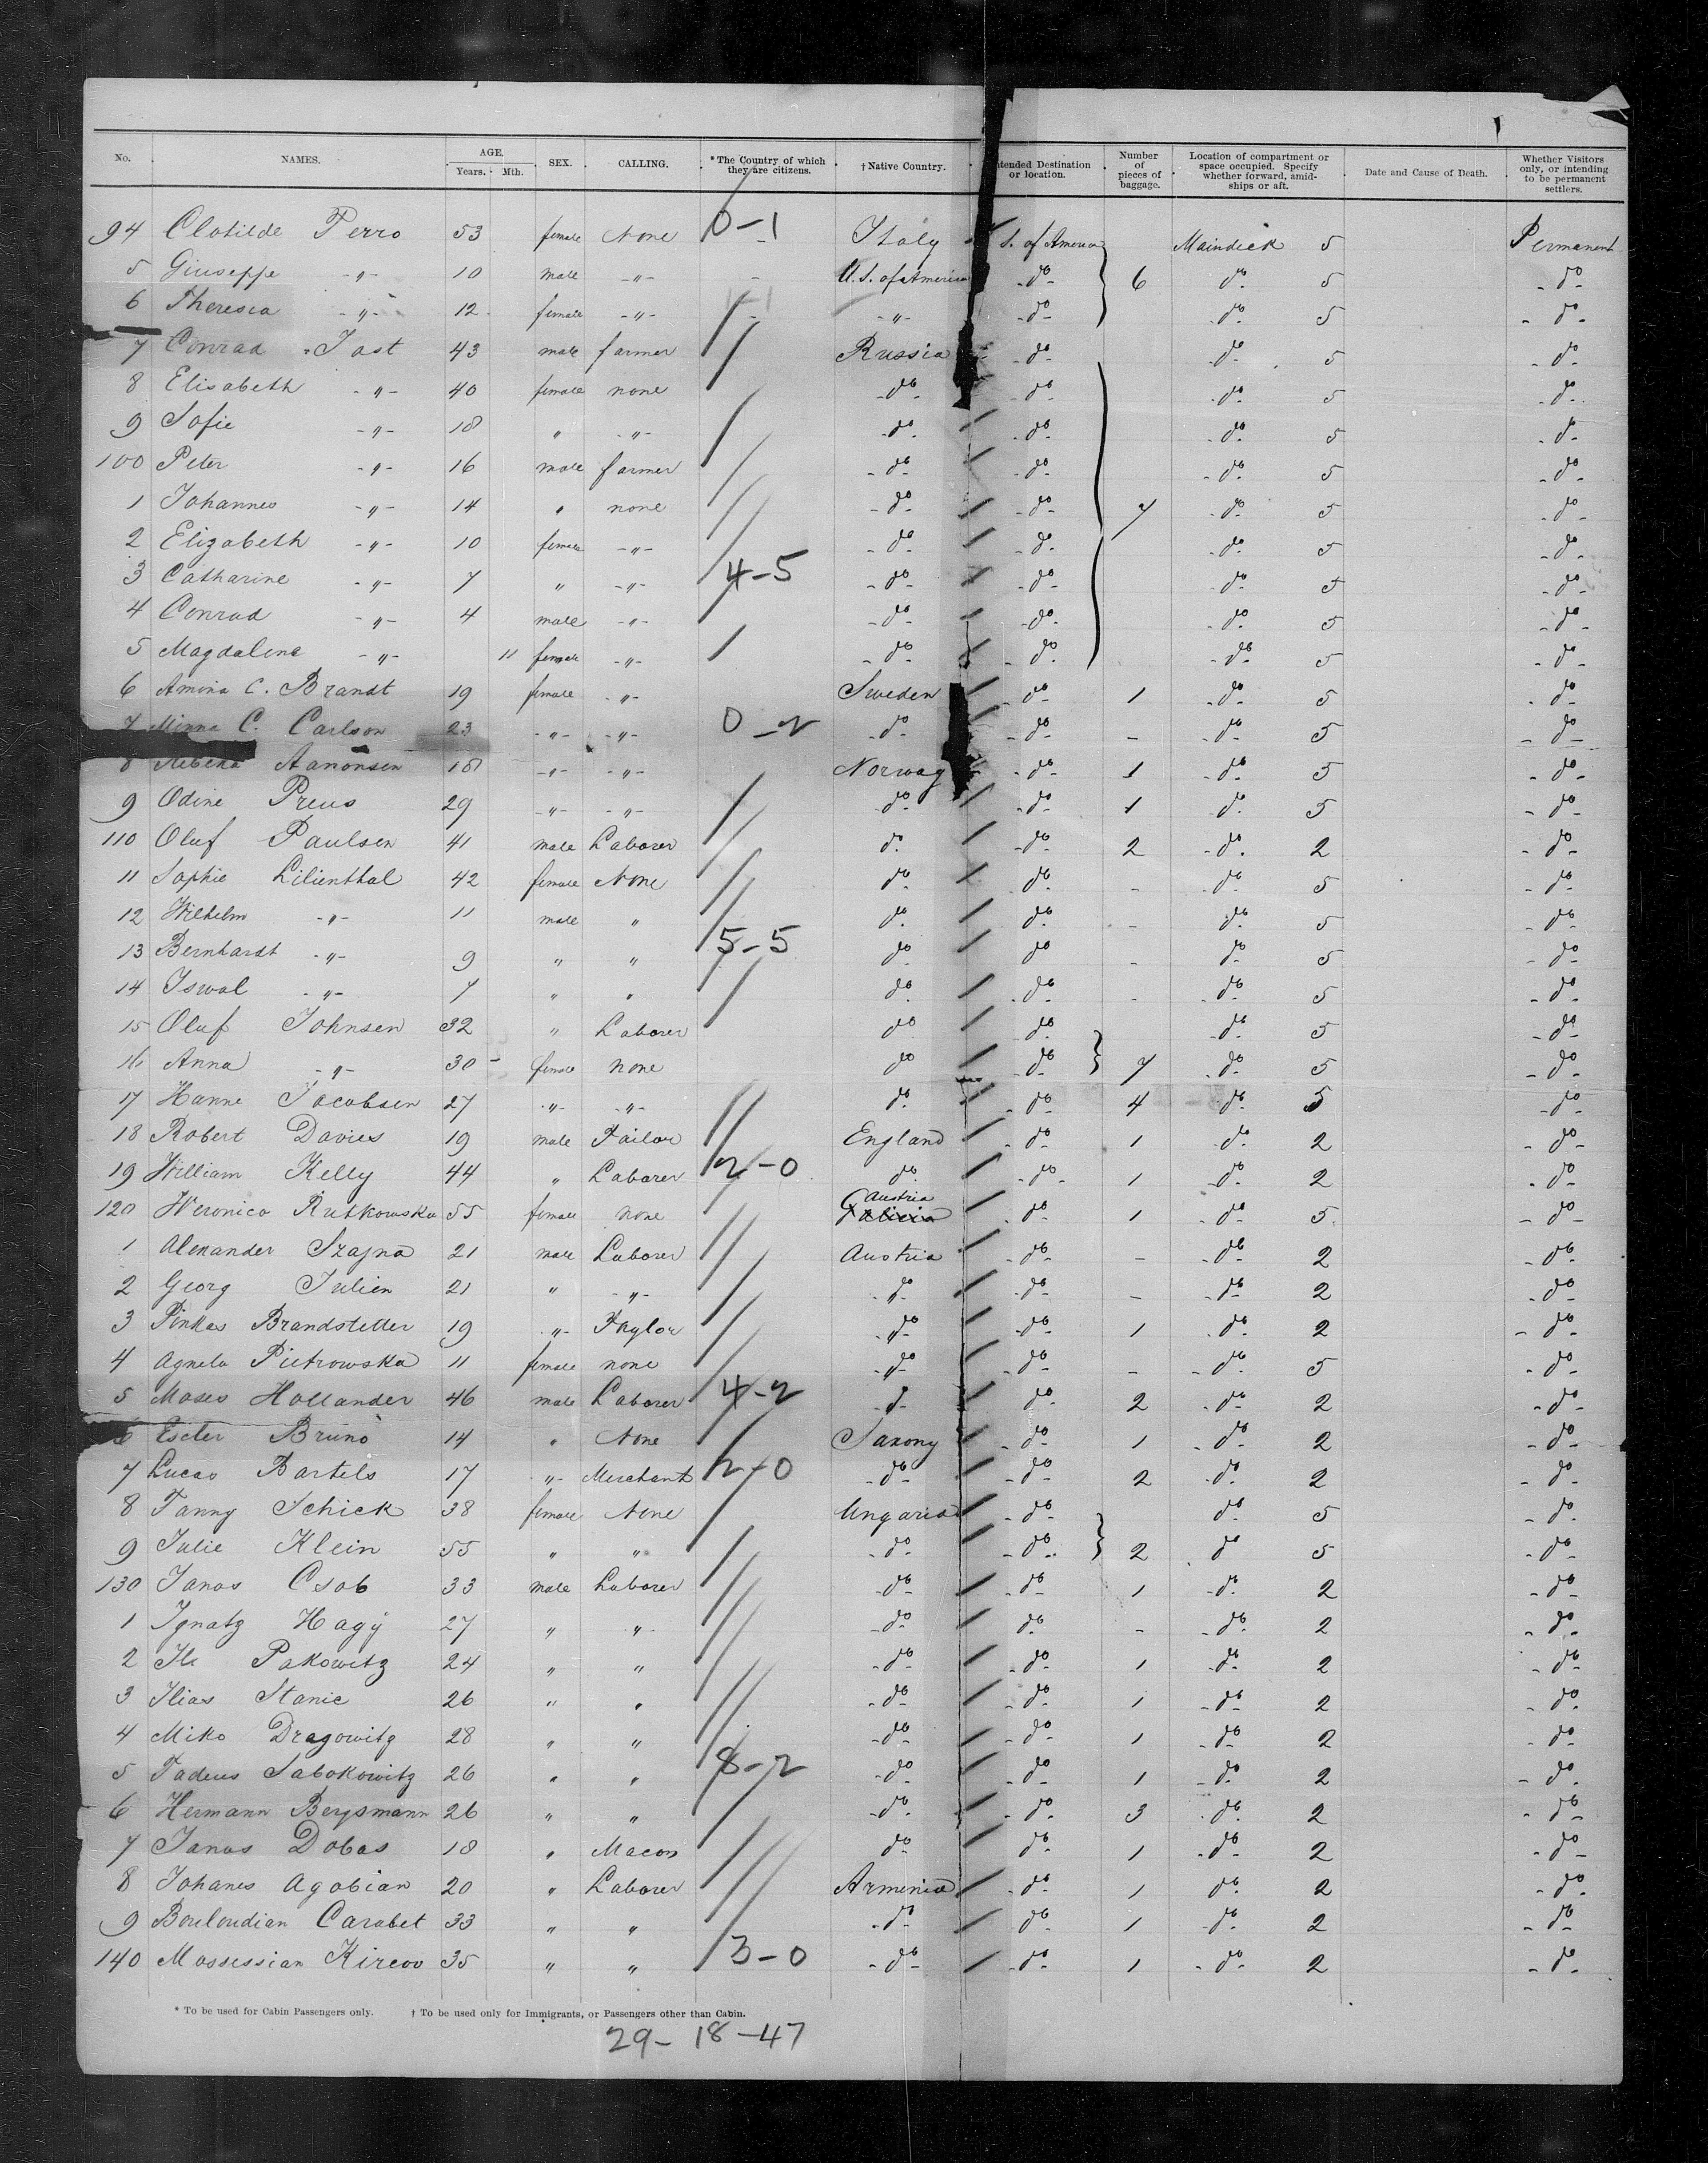 No. NAMES. AGE. Years. Mth. SEX. CALLING. *The Country of which they are citizens. †Native Country. ntended Destination or location. Number of pieces of baggage. Location of compartment or space occupied. Specify whether forward, amid-ships or aft. Date and Cause of Death. Whether Visitors only, or intending to be permanent settlers.
94 Clotilde Perro 53 female None 0-1 Italy S. of America Maindeck 5 Permanent
5 Giuseppe -"- 10 male -"- - U.S. of America -do- 6 do- 5 -do-
6 Theresia -"- 12 female -"- 1-1 -"- -do- -do- 5 -do-
7 Conrad Jost 43 male farmer Russia -do- -do- 5 -do-
8 Elisabeth -"- 40 female none -do- -do- -do- 5 -do-
9 Sofie -"- 18 " -"- -do- -do- -do- 5 -do-
100 Peter -"- 16 male farmer -do- -do- -do- 5 -do-
1 Johannes -"- 14 " none -do- -do- 7 -do- 5 -do-
2 Elizabeth -"- 10 female -"- -do- -do- -do- 5 -do-
3 Catharine -"- 7 " -"- 4-5 -do- -do- -do- 5 -do-
4 Conrad -"- 4 male -"- -do- -do- -do- 5 -do-
5 Magdalene -"- 11 female -"- -do- -do- -do- 5 -do-
6 Amina C. Brandt 19 female -"- Sweden -do- 1 -do- 5 -do-
7 Minna C. Carlson 23 -"- -"- 0-2 -do- -do- - -do- 5 -do-
8 Rebeka Aanonsen 18 -"- -"- Norway -do- 1 -do- 5 -do-
9 Odine Preus 29 -"- -"- do- -do- 1 do- 5 -do-
110 Oluf Paulsen 41 male Laborer do- -do- 2 -do- 2 -do-
11 Sophie Lilienthal 42 female None do- do- - -do- 5 -do-
12 Wilhelm -"- 11 male " do- do- - do- 5 -do-
13 Bernhardt -"- 9 " " 5-5 do- do - do- 5 -do-
14 Iswal -"- 7 " " do- -do- - -do- 5 -do-
15 Oluf Johnsen 32 " Laborer do do- -do- 5 -do-
16 Anna -"- 30 - female none do -do- 7 -do- 5 -do-
17 Hanne Jacobsen 27 -"- -"- do- -do- 4 -do- 5 -do-
18 Robert Davies 19 male Tailor England -do- 1 -do- 2 -do-
19 William Kelly 44 " Laborer 2-0 do- -do- 1 -do- 2 -do-
120 Weronica Rutkowska 55 female none Austria Galicia -do- 1 -do- 5 -do-
1 Alexander Szajna 21 male Laborer Austria -do- - -do- 2 -do-
2 Georg Julien 21 " -"- -"- -do- - -do- 2 -do-
3 Pinkas Brandstetter 19 -"- Taylor -do- -do- 1 -do- 2 -do-
4 Agnela Pietrowska 11 female none -do- -do- - -do- 5 -do-
5 Moses Hollander 46 male Laborer 4-2 -do- do- 2 -do- 2 -do-
6 Ester Bruno 14 " None Saxony -do- 1 -do- 2 -do-
7 Lucas Bartels 17 -"- Merchant 2-0 -do- -do- 2 -do- 2 -do-
8 Fanny Schick 38 female None Ungaria -do- do- 5 -do-
9 Julie Klein 55 " " -do- -do- 2 do 5 -do-
130 Janos Csab 33 male Laborer -do- -do- 1 -do- 2 -do-
1 Ignatz Hagÿ 27 " " -do- do- - -do- 2 -do-
2 Ile Pakowitz 24 " " -do- -do- 1 -do- 2 -do-
3 Ilias Stanic 26 " " -do- -do- 1 -do- 2 -do-
4 Miko Dragowitz 28 " " -do- -do- 1 -do- 2 -do-
5 Tadeus Sabokowitz 26 " " 8-2 -do- -do- 1 -do- 2 -do-
6 Hermann Bergsmann 26 " " -do- -do- 3 -do- 2 -do-
7 Janos Dobas 18 " Macon do- do- 1 -do- 2 -do-
8 Johanes Agobian 20 " Laborer Armenia -do- 1 do- 2 -do-
9 Bouloudian Carabet 33 " " -do- -do- 1 -do- 2 -do-
140 Mossessian Kircov 35 " " 3-0 -do- -do- 1 -do- 2 -do-
* To be used for Cabin Passengers only. † To be used only for Immigrants, or Passengers other than Cabin.
29- 18-47